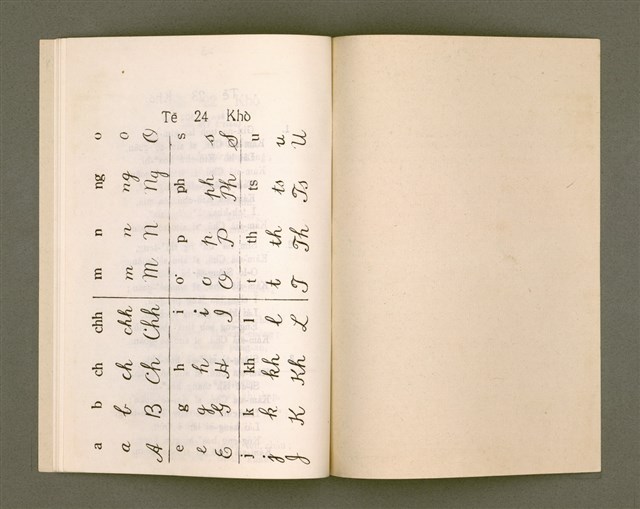 Tē 24 Khò
a b ch chh m n ng o
a b ch chh m n ng o
A B Ch Chh M N Ng O
e g h i o͘ p ph s
e g h i o p ph s
E G H I O P Ph S
j k kh l t th ts u
j k kh l t th ts u
J K Kh L T Th Ts U